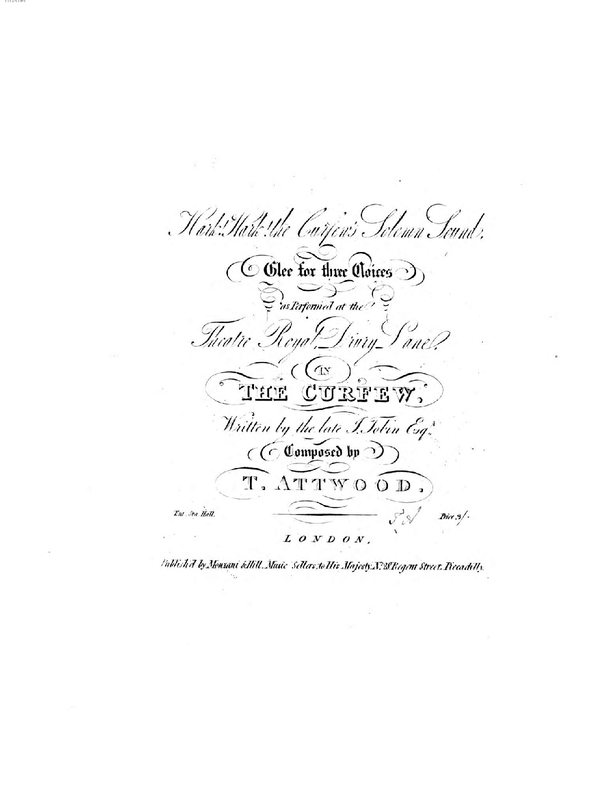 Hark! Hark! the Curfew's Solemn Sound.
Glee for three Voices
as Performed at the
Theatre Royal, Drury Lane.
IN
THE CURFEW,
Written by the late J. Tobin Esqr.
Composed by
T. ATTWOOD.
Ent. Sta. Hall. Price 3/-
LONDON,
Publish'd by Monzani & Hill, Music Sellers to His Majesty, No. 28 Regent Street, Piccadilly.